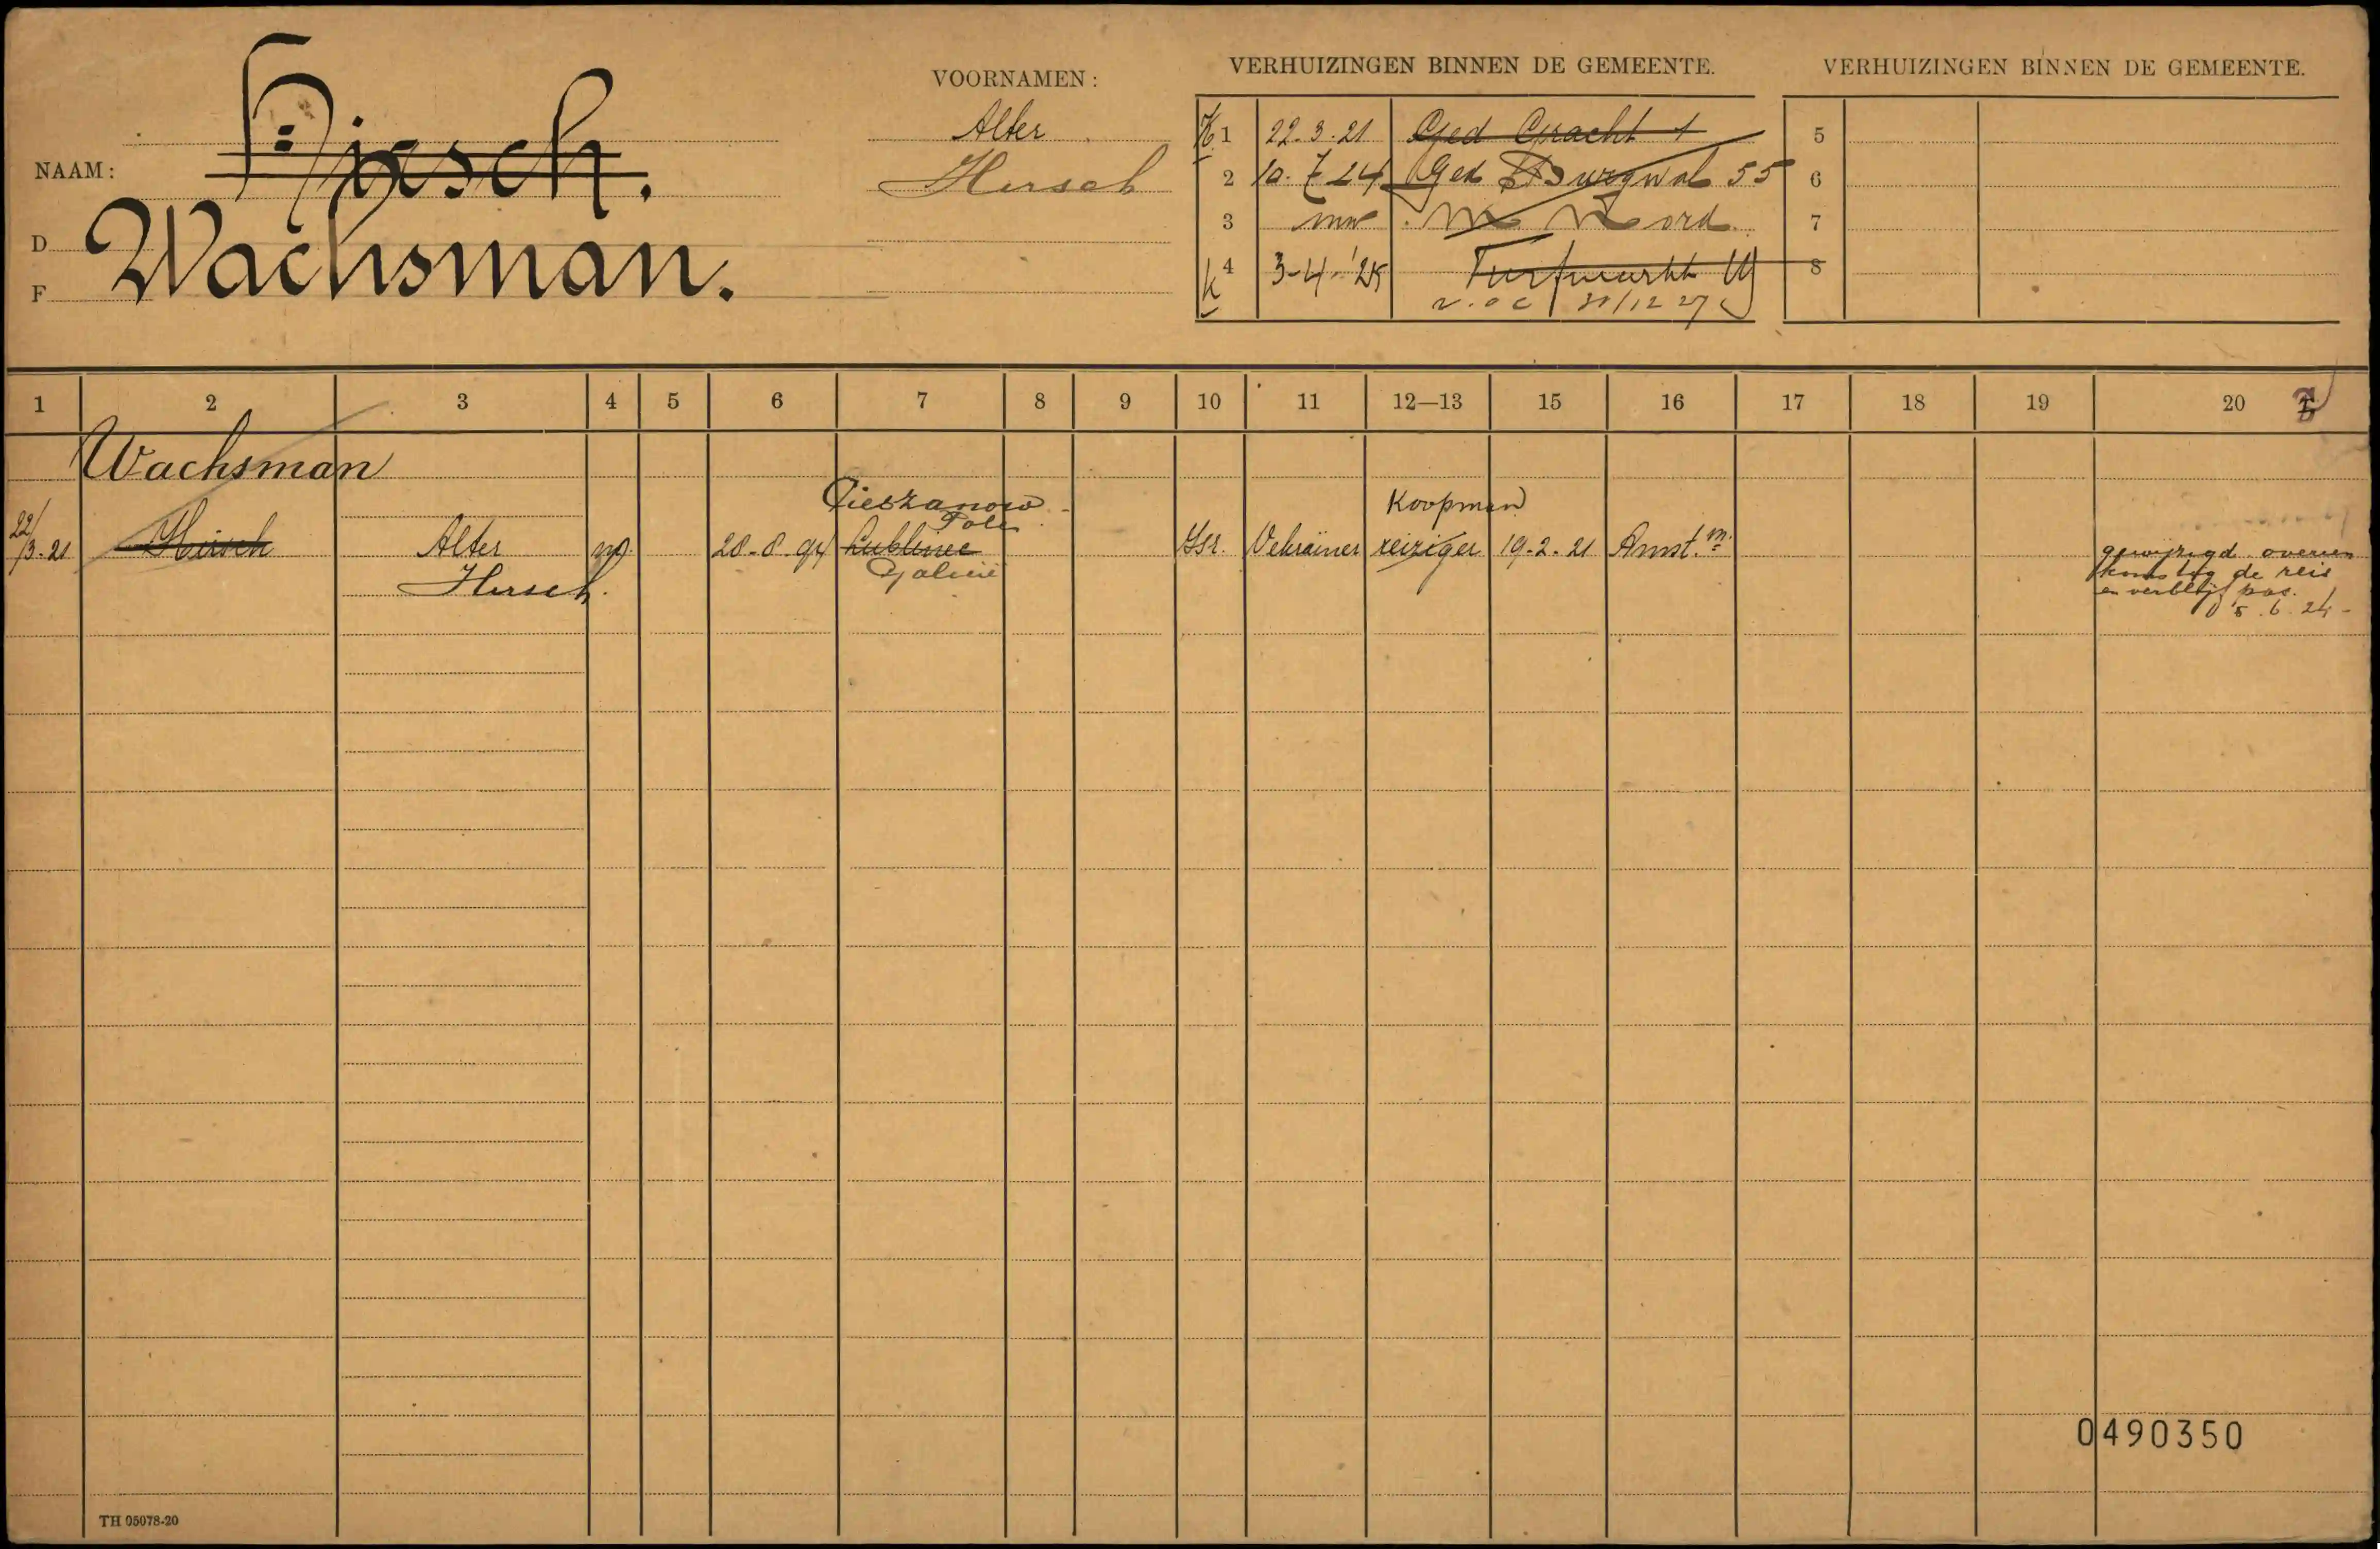 VOORNAMEN:
VERHUIZINGEN BINNEN DE GEMEENTE.
VERHUIZINGEN BINNEN DE GEMEENTE.
NAAM:
Hirsch.
D
F
Wachsman.
Alter
Hirsch
K 1 22.3.21 Ged Gracht 1
2 10.7 24 Ged Burgwal 55
3 Noord
K 4 3-4-'25 Turfmarkt
v.o c 31/12 27
5
6
7
8
1 2 3 4 5 6 7 8 9 10 11 12—13 15 16 17 18 19 20
Wachsman
Cieszanow
Polen
Koopman
22/3-21 Hirsch Alter m. 28-8-94 Lublinec Isr. Uekrainer reiziger 19-2-21 Amst.m
Hirsch. Galicië
gewijzigd overeen
komstig de reis
en verblijf pas.
5.6.24-
0490350
TH 05078-20